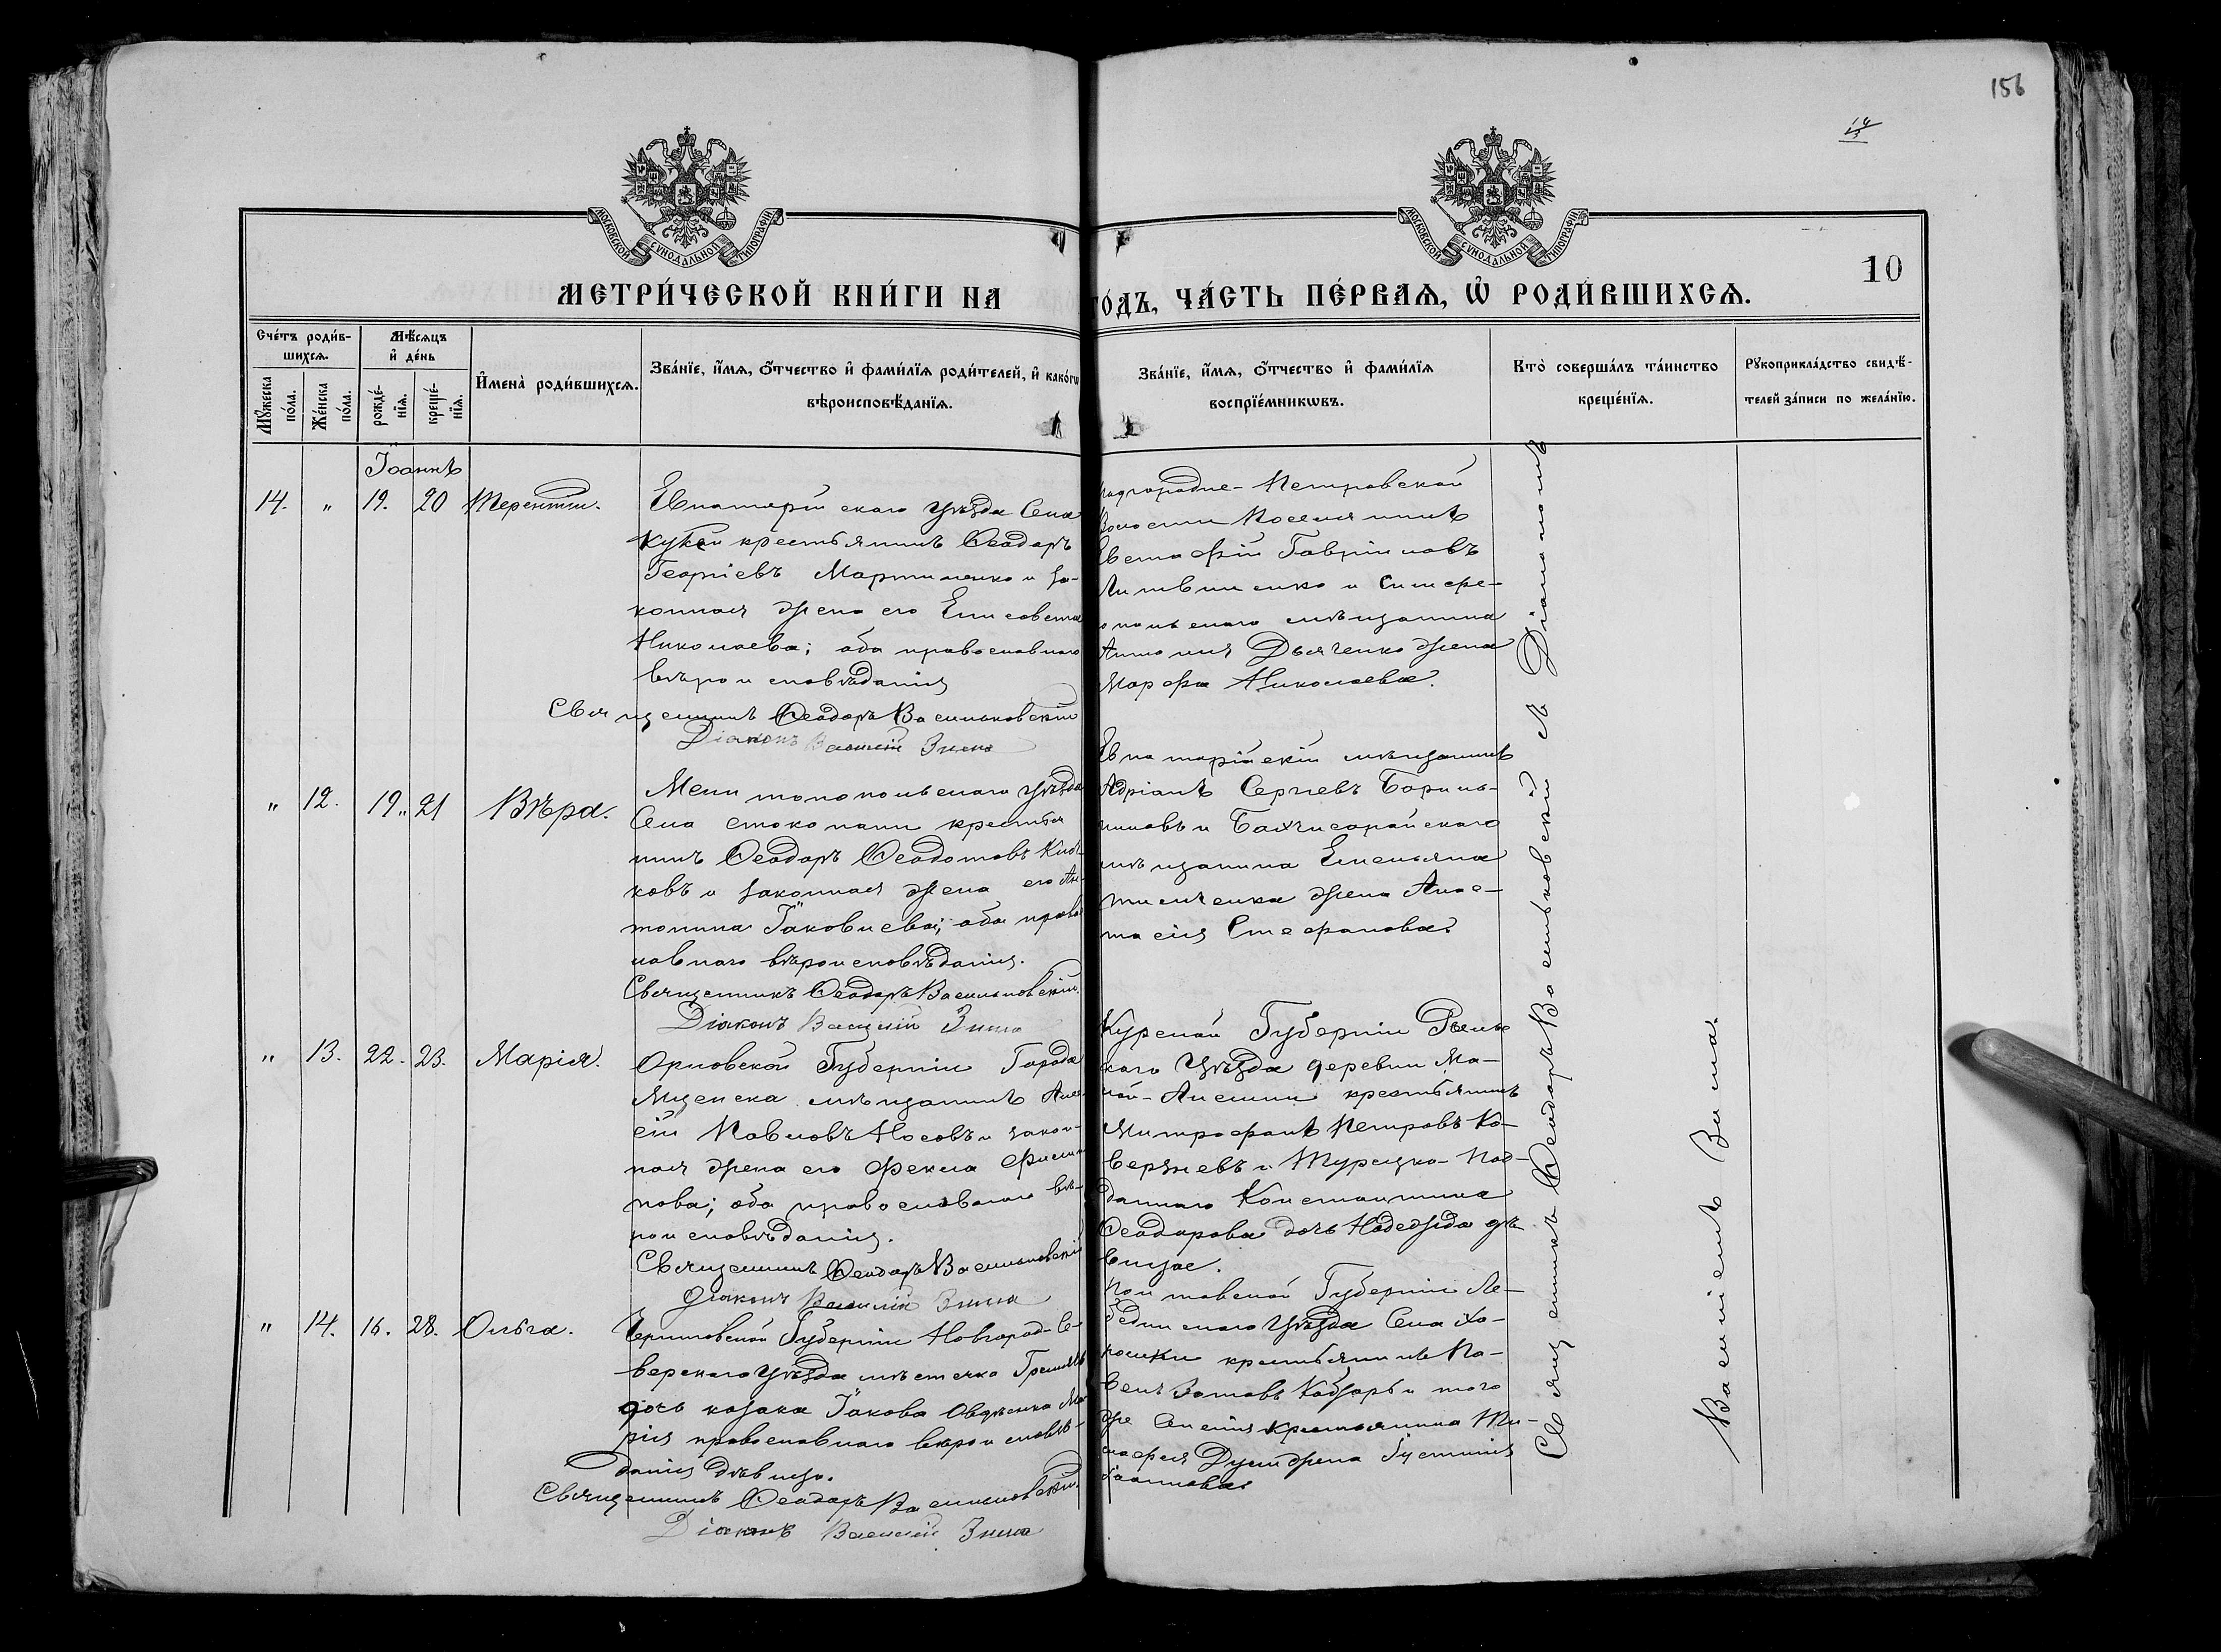 156
14
МОСКОВСКОЙ СУНОДАЛЬНОЙ ТИПОГРАФІИ
МОСКОВСКОЙ СУНОДАЛЬНОЙ ТИПОГРАФІИ
10
МЕТРИ́ЧЕСКОЙ КНИ́ГИ НА
ГО́ДЪ, ЧА́СТЬ ПЕ́РВАЯ, Ѡ РОДИ́ВШИХСЯ.
Сче́тъ роди́в-
шихся.
Мѣ́сяцъ
и де́нь
Мꙋ́жеска по́ла.
Же́нска по́ла.
рожде́-
нїя.
креще́-
нїя.
Имена̀ роди́вшихся.
Зва́нїе, и́мя, ѻ҆́тчество и фами́лїя роди́телей, и како́гѡ
вѣроисповѣ́данїя.
Зва́нїе, и́мя, ѻ҆́тчество и фами́лїя
воспрїе́мникѡвъ.
Кто̀ соверша́лъ та́инство
креще́нїя.
Рꙋкоприкла́дство свидѣ́-
телей за́писи по жела́нїю.
Іюннь
14. " 19. 20 Терентій.
Евпаторійскаго уѣзда Села
Кукеи крестьянинъ Ѳеодоръ
Георгіевъ Мартиненко и за-
конная жена его Елисовета
Николаева; оба православнаго
вѣроисповѣданія
Священникъ Ѳеодоръ Васильковскій
Діаконъ Василій Зима
Подгородне-Петровской
Волости Поселянинъ
Евстафій Гавріиловъ
Литвиненко и Симфе-
ропольскаго мѣщанина
Антонія Дьяченко жена
Марфа Николаева.
" 12. 19. 21 Вѣра.
Мелитопольскаго уѣзда
Села крестья
нинъ Ѳеодоръ Ѳеодотовъ
ковъ и законная жена его Ан-
тонина Іаковлева; оба правос
лавнаго вѣроисповѣданія.
Священникъ Ѳеодоръ Васильковскій.
Діаконъ Василій Зима
Евпаторійскій мѣщанинъ
Адріанъ Сергіевъ
и Бахчисарайскаго
мѣщанина Емельяна
жена Анас-
тасія Стефанова.
" 13. 22. 23. Марія.
Орловской Губерніи Города
Мценска мѣщанинъ Алек
сій Павловъ Носовъ и закон-
ная жена его Фекла Филип
пова; оба православнаго вѣ-
роисповѣданія.
Священникъ Ѳеодоръ Васильковскій
Діаконъ Василій Зима
Курской Губерніи Рыльс
каго Уѣзда деревни Ма-
лой-Алешни крестьянинъ
Митрофанъ Петровъ Ко-
вержневъ и Турецко-Под-
даннаго Константина
Ѳеодорова дочь Надежда дѣ
вица.
" 14. 16. 28. Ольга.
Черниговской Губерніи Новгород-Се-
верскаго Уѣзда мѣстечка Гремячь
дочь козака Іакова Овдѣенка Ма
рія православнаго вѣроисповѣ-
данія дѣвица.
Священникъ Ѳеодоръ Васильковскій.
Діаконъ Василій Зима
Полтавской Губерніи Ле-
бединскаго Уѣзда Села
крестьянинъ Па-
велъ Зотовъ Кобзарь и того
же Селенія крестьянина Ти-
мофея жена Іустинія
Іоаннова.
Священникъ Ѳеодоръ Васильковскій съ Діакономъ
Василіемъ Зима.